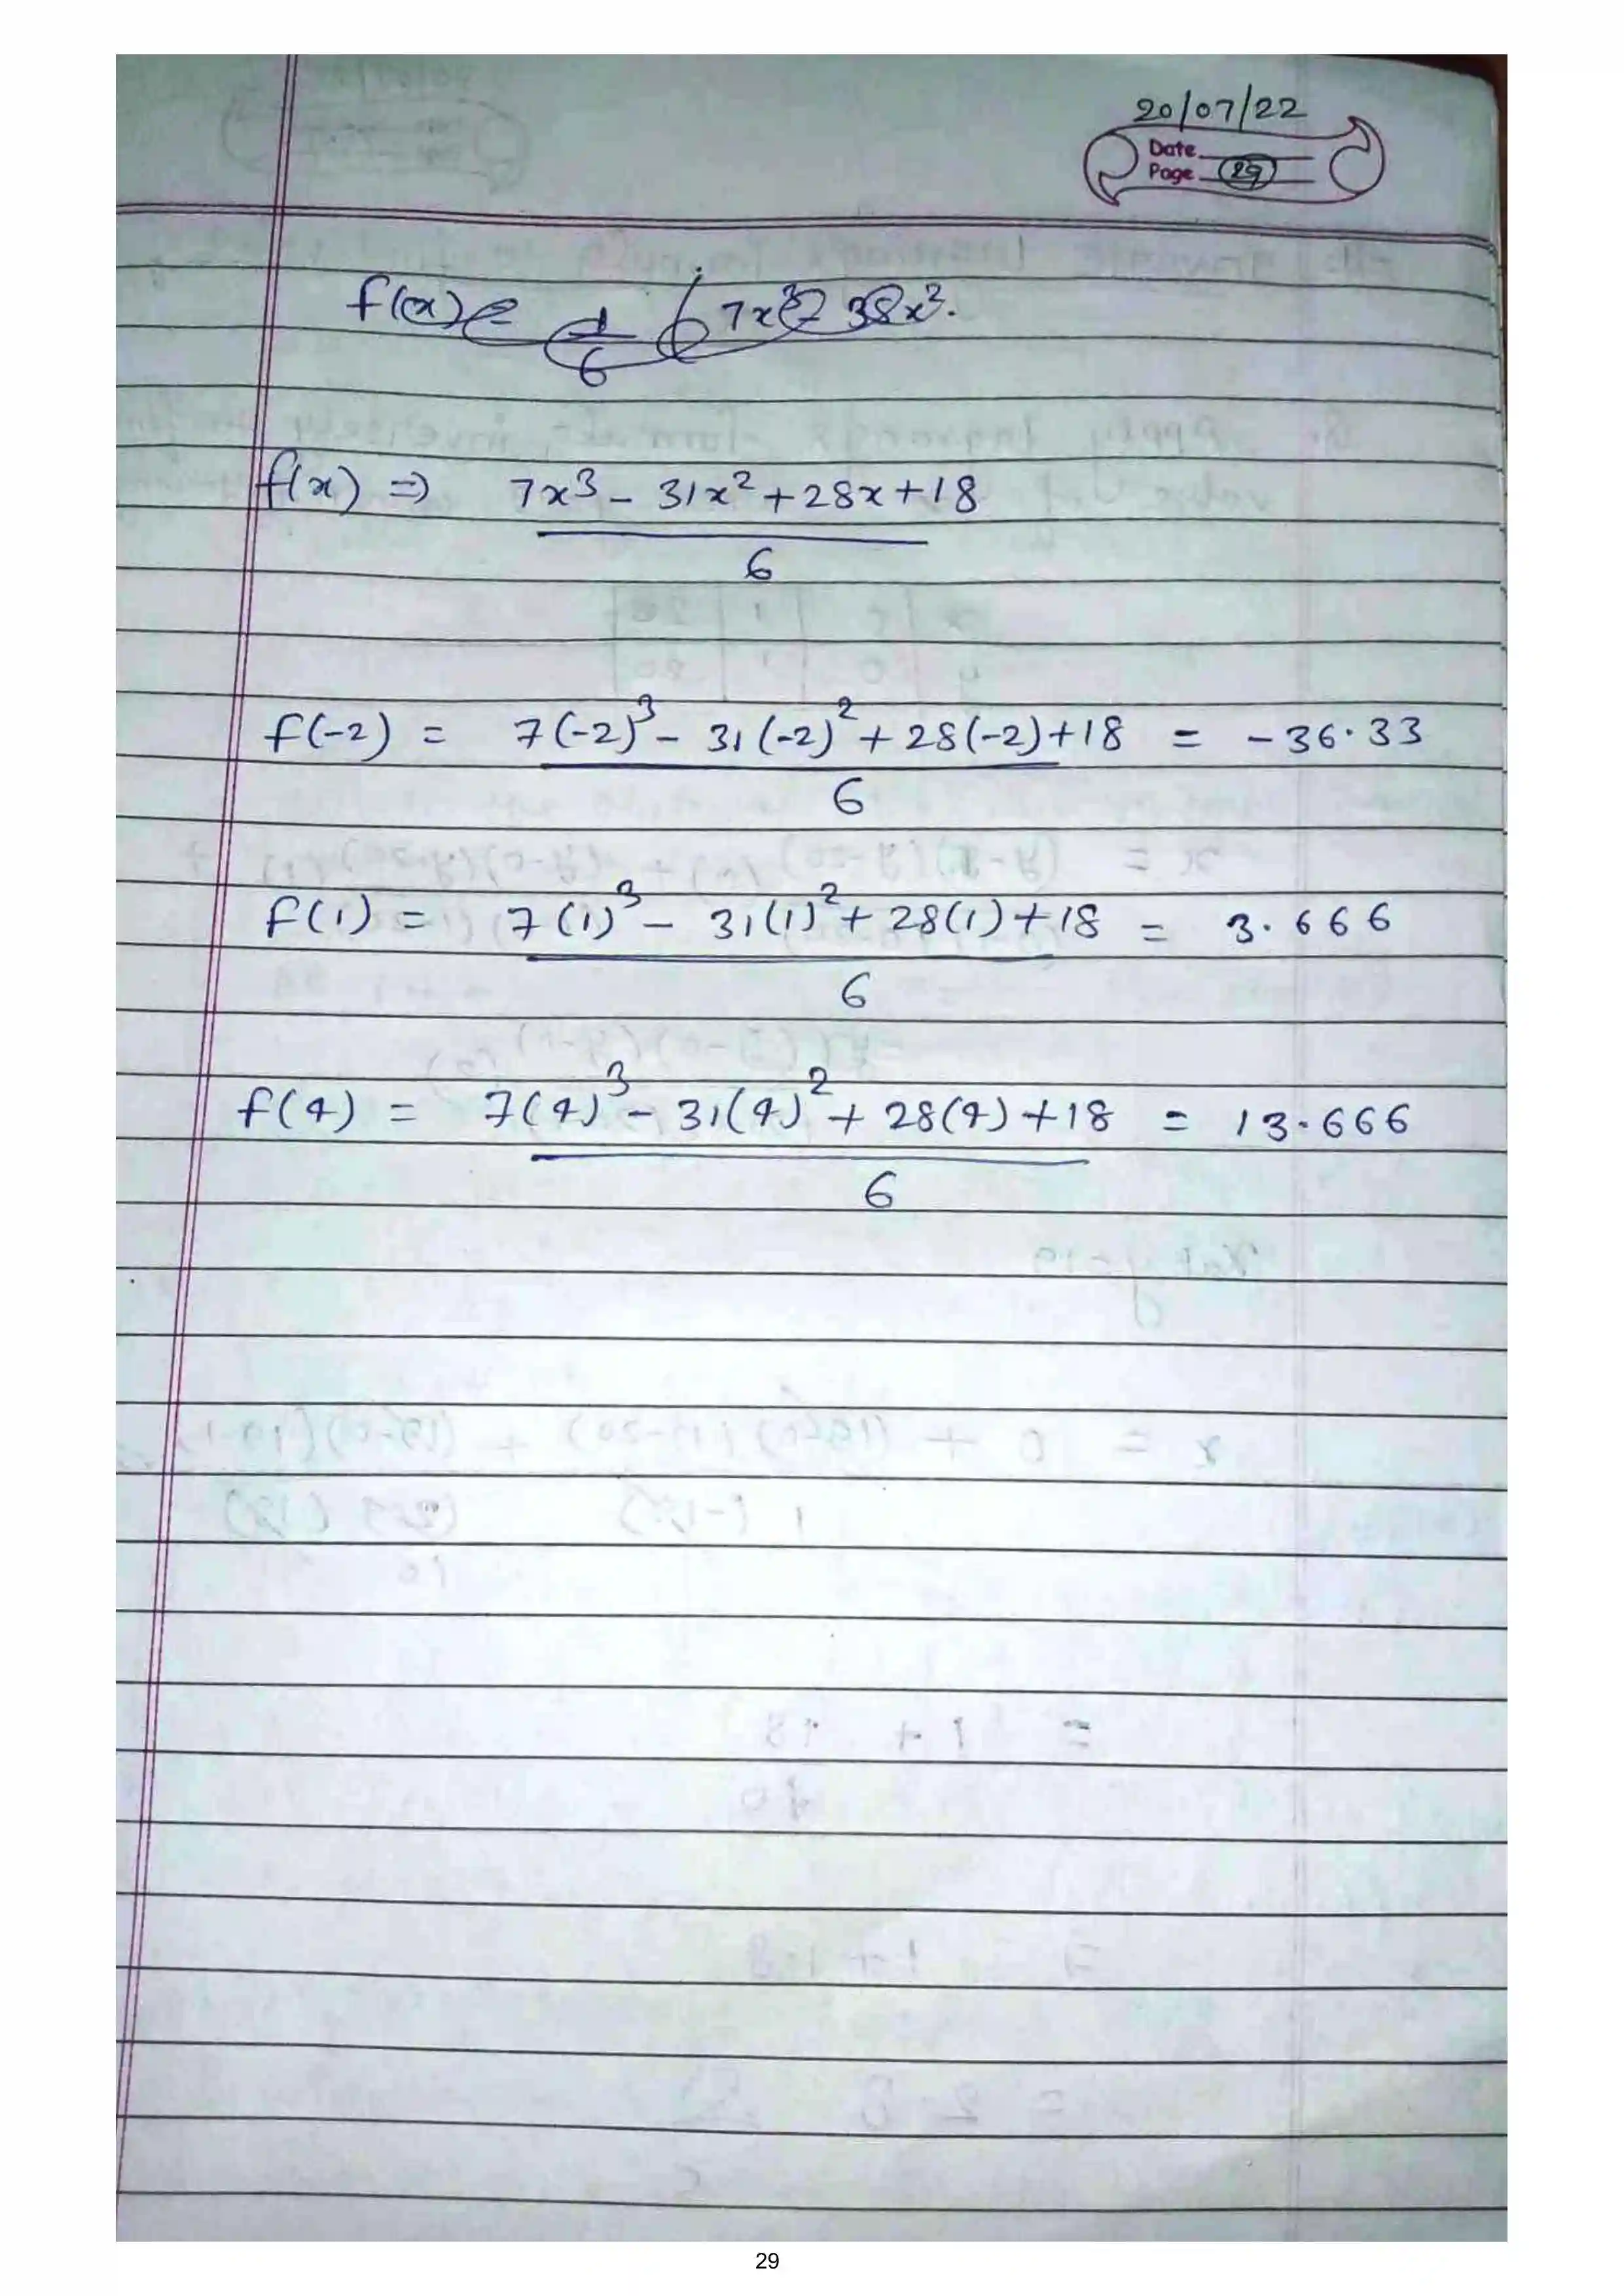 20/07/22
Date
Page 29
f(x) = 1/6 ( 7x³ - 38x².
f(x) ⇒ 7x³ - 31x² + 28x + 18
6
f(-2) = 7(-2)³ - 31(-2)² + 28(-2) + 18 = -36.33
6
f(1) = 7(1)³ - 31(1)² + 28(1) + 18 = 3.666
6
f(4) = 7(4)³ - 31(4)² + 28(4) + 18 = 13.666
6
29